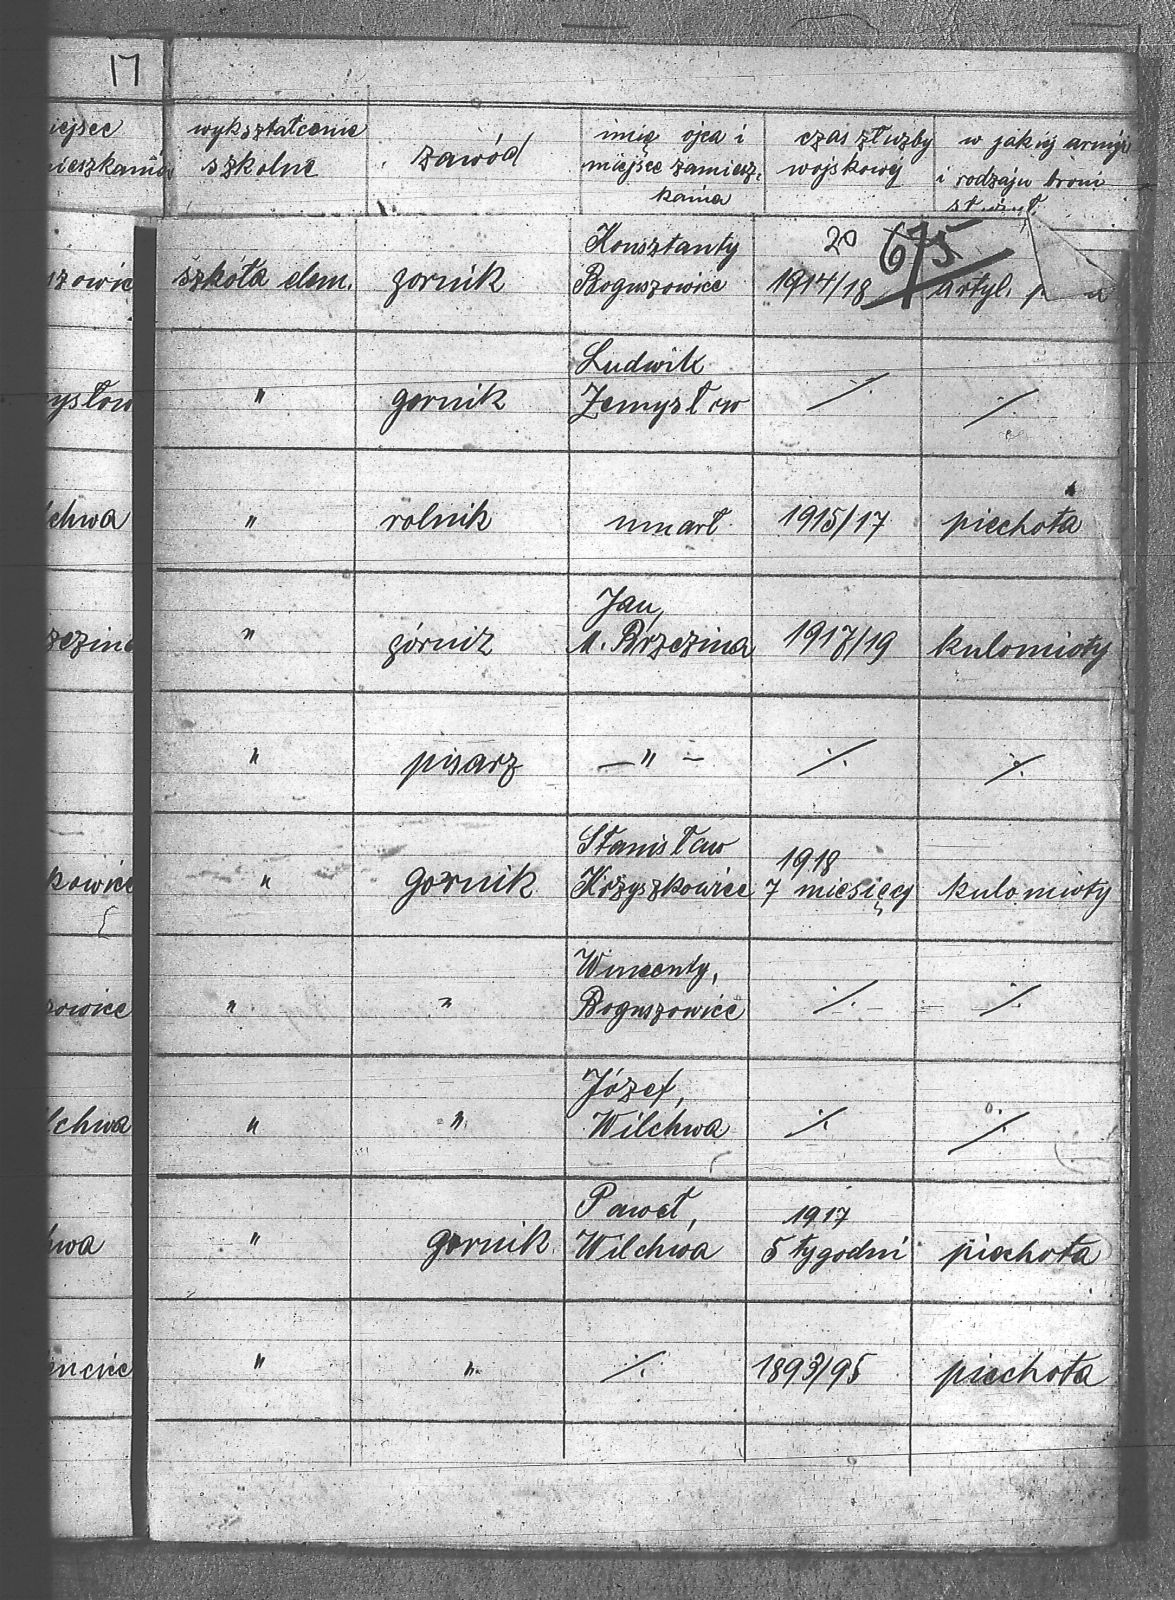 17
wykształcenie
szkolne
zawód
imię ojca i
miejsce zamiesz,
kania
czas służby
wojskowej
w jakiej armji
i rodzaju broni
służył.
szkoła elem.
gornik
Konsztanty
Boguszowice
20
1914/18
675
artyl.
"
gornik
Ludwik
Żemysłow
./.
./.
chwa
"
rolnik
umarł
1915/17
piechota
"
górnik
Jan,
M. Brzezina
1917/19
kulomioty
"
pisarz
— " —
./.
./.
kowice
"
gornik
Stanisław
Krzyszkowice
1918
7 miesięcy
kulomioty
zowice
"
"
Wincenty,
Boguszowice
./.
./.
lchwa
"
"
Józef,
Wilchwa
./.
./.
hwa
"
gornik
Paweł,
Wilchwa
1917
5 tygodni
piechota
"
"
./.
1893/95
piechota